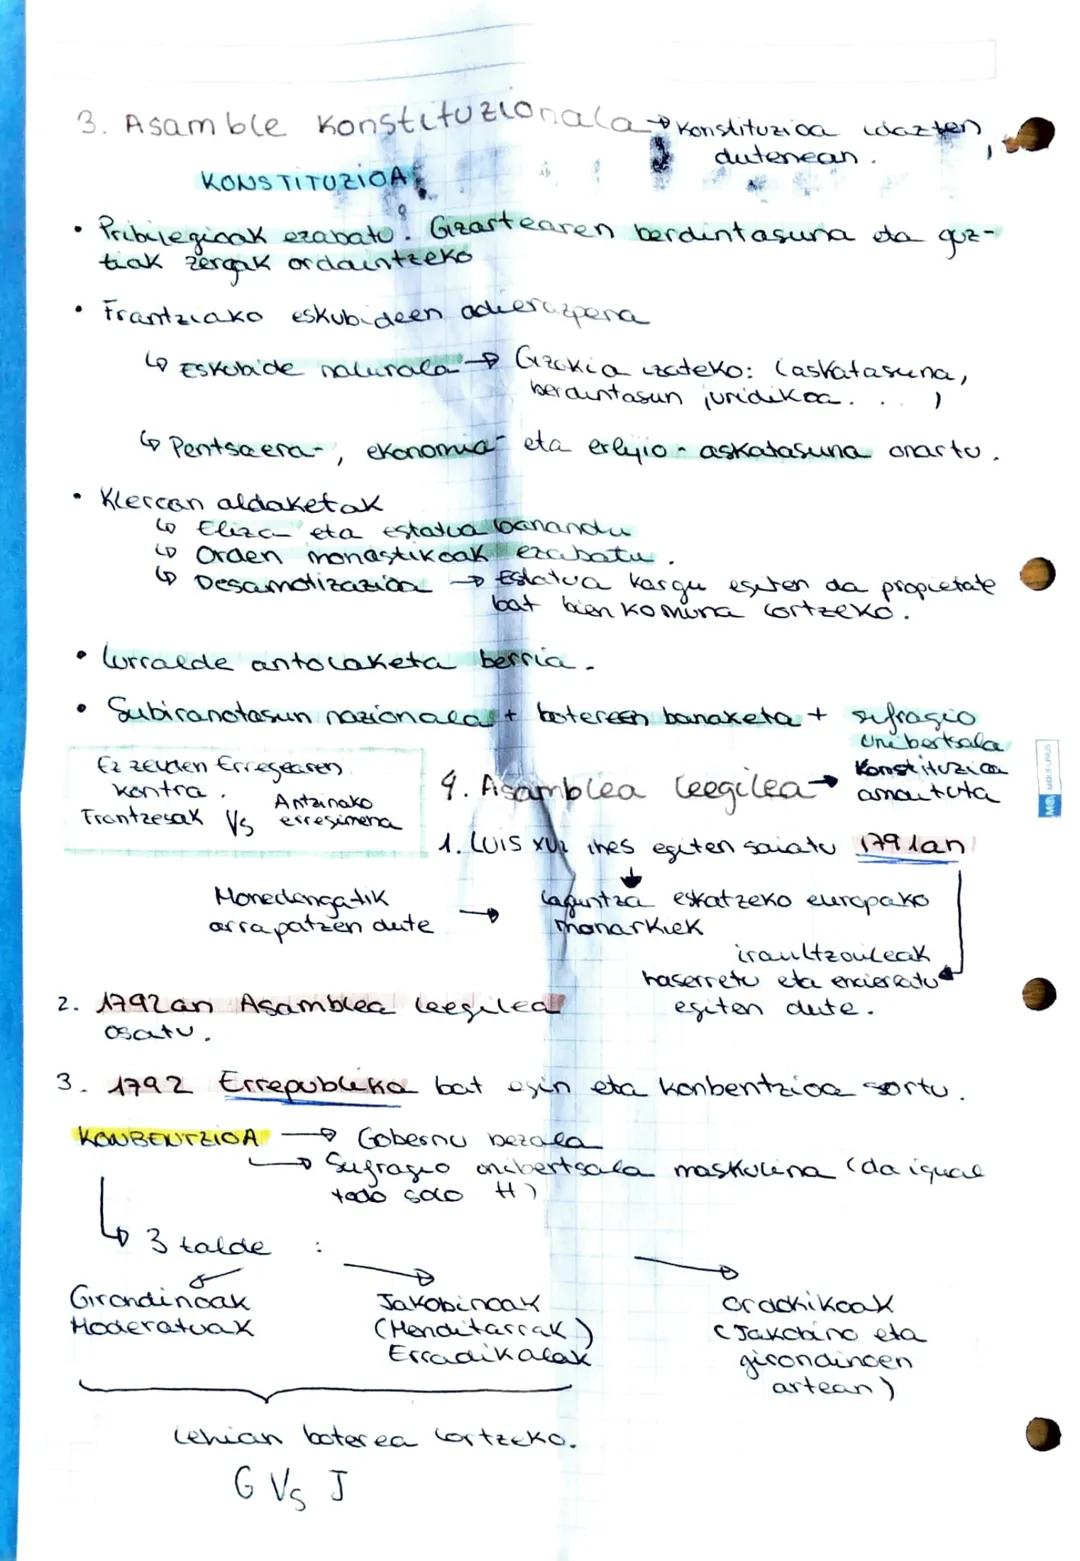 3. Asamble Konstituzionala → Konstituzioa idazten
dutenean.
KONSTITUZIOA
• Pribilegioak ezabatu. Gizartearen berdintasuna eta guz-
tiak zergak ordaintzeko
• Frantziako eskubideen adierazpena
↳ Eskubide naturala → Gizakia izateko: (askatasuna,
berdintasun juridikoa...)
↳ Pentsaera-, ekonomia- eta erlijio-askatasuna onartu.
• Kleroan aldaketak
↳ Eliza eta estatua banandu
↳ Orden monastikoak ezabatu.
↳ Desamotizazioa → Estatua kargu egiten da propietate
bat bien komuna lortzeko.
• Lurralde antolaketa berria.
• Subiranotasun nazionala + botereen banaketa + sufragio
unibertsala
Ez zeuden Erregearen
kontra.
Frantzesak Vs Antzinako
erregimena
4. Asamblea leegilea → Konstituzioa
amaituta
1. LUIS XVI ihes egiten saiatu 1791an
laguntza eskatzeko europako
monarkiek
Monedengatik
arrapatzen dute →
iraultzaileak
haserretu eta
egiten dute.
2. 1792an Asamblea leegilea
osatu.
3. 1792 Errepublika bat egin eta konbentzioa sortu.
KONBENTZIOA → Gobernu bezala
→ Sufragio unibertsala maskulina (da igual
todo solo H)
↳ 3 talde :
Girondinoak
Moderatuak
Jakobinoak
(Menditarrak)
Erradikalak
Ordokikoak
(Jakobino eta
girondinoen
artean)
Lehian boterea lortzeko.
G Vs J